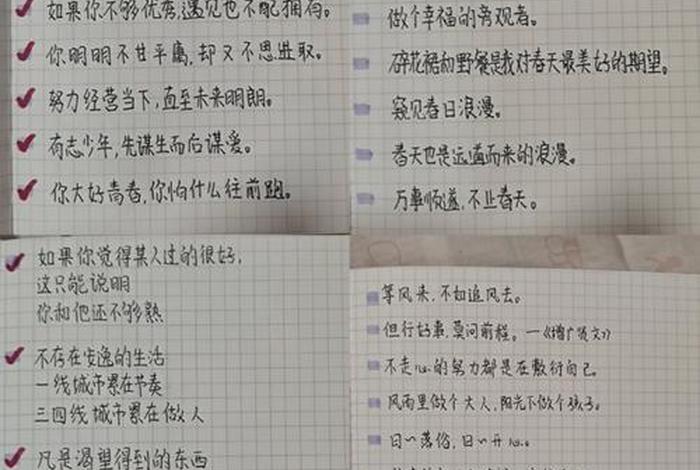 如果你不够优秀,遇见也不配拥有。
你明明不甘平庸,却又不思进取。
努力经营当下,直至未来明朗。
有志少年,先谋生而后谋爱。
你大好青春,你怕什么往前跑。
做个幸福的旁观者。
碎花裙和野餐是我对春天最美好的期望。
窥见春日浪漫。
春天也是远道而来的浪漫。
万事顺遂,不止春天。
如果你觉得某人过的很好,
这只能说明
你和他还不够熟
不存在安逸的生活
一线城市累在节奏
三四线城市累在做人
凡是渴望得到的东西
等风来,不如追风去。
但行好事,莫问前程。—《增广贤文》
不走心的努力都是在敷衍自己。
风雨里做个大人,阳光下做个孩子。
日日落俗,日日开心。